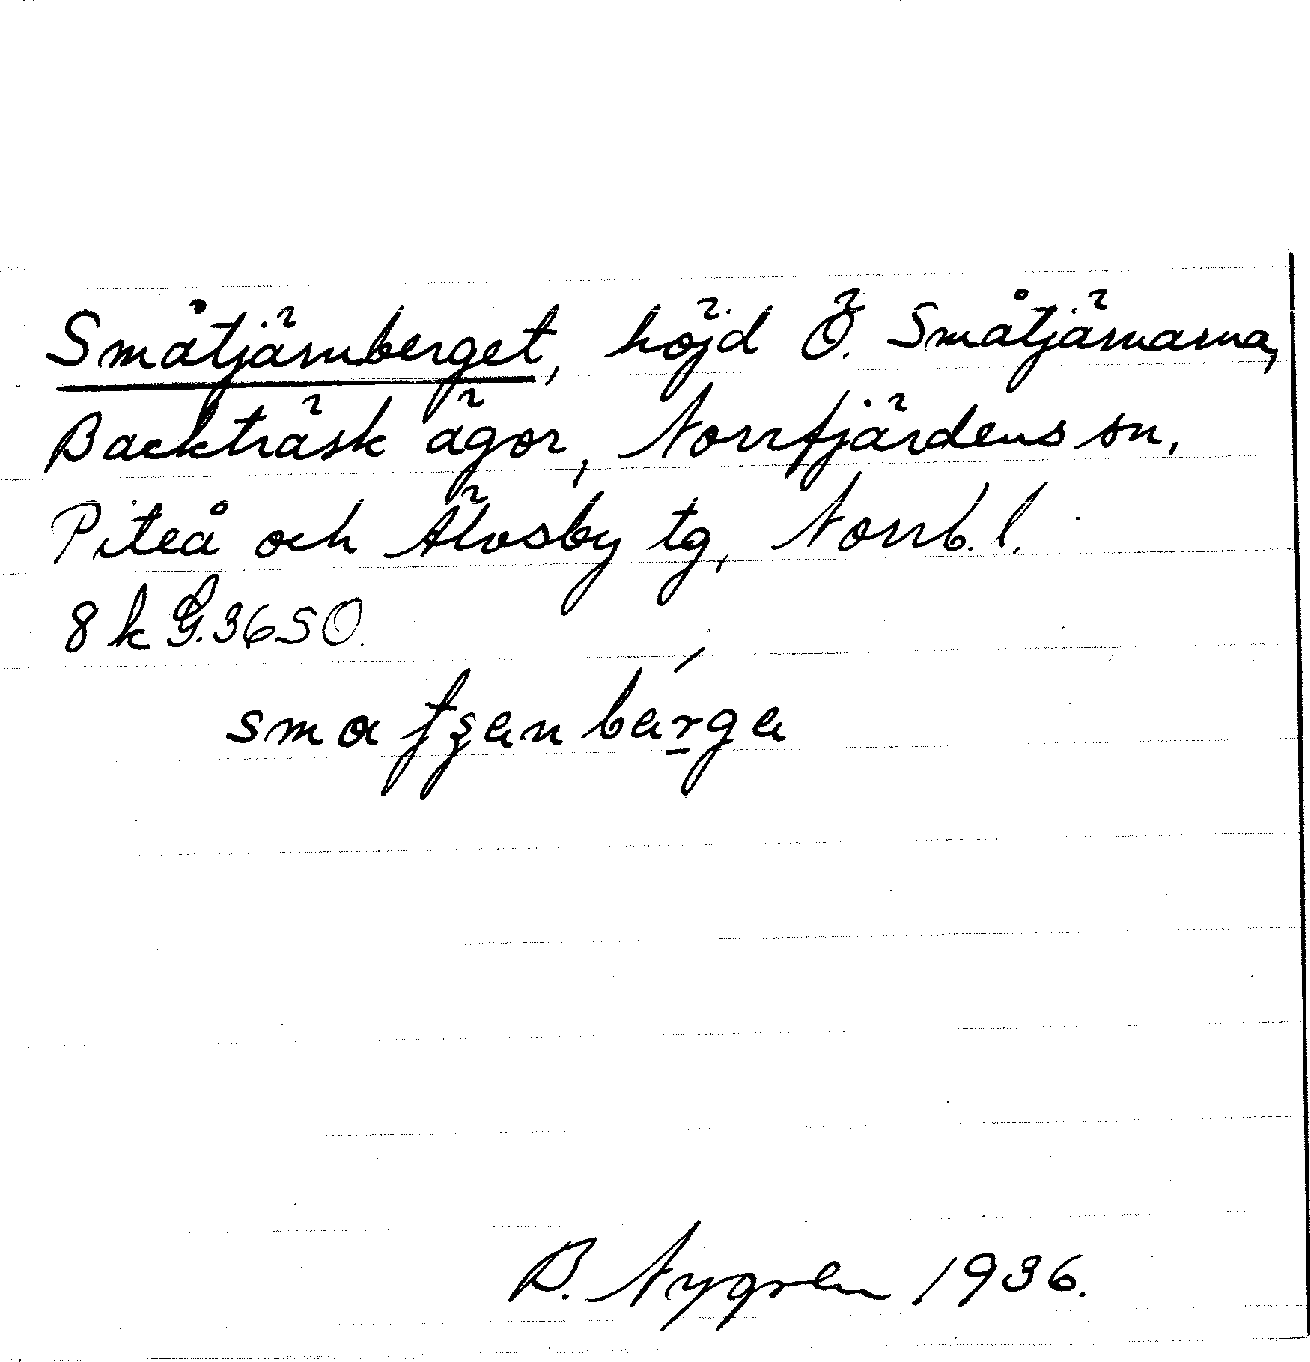 Småtjärnberget, höjd Ö. Småtjärnarna,
Backträsk ägor, Norrfjärdens sn,
Piteå och Älvsby tg, Norrb. l.
8 k G. 36 SO.
B. Nygren 1936.